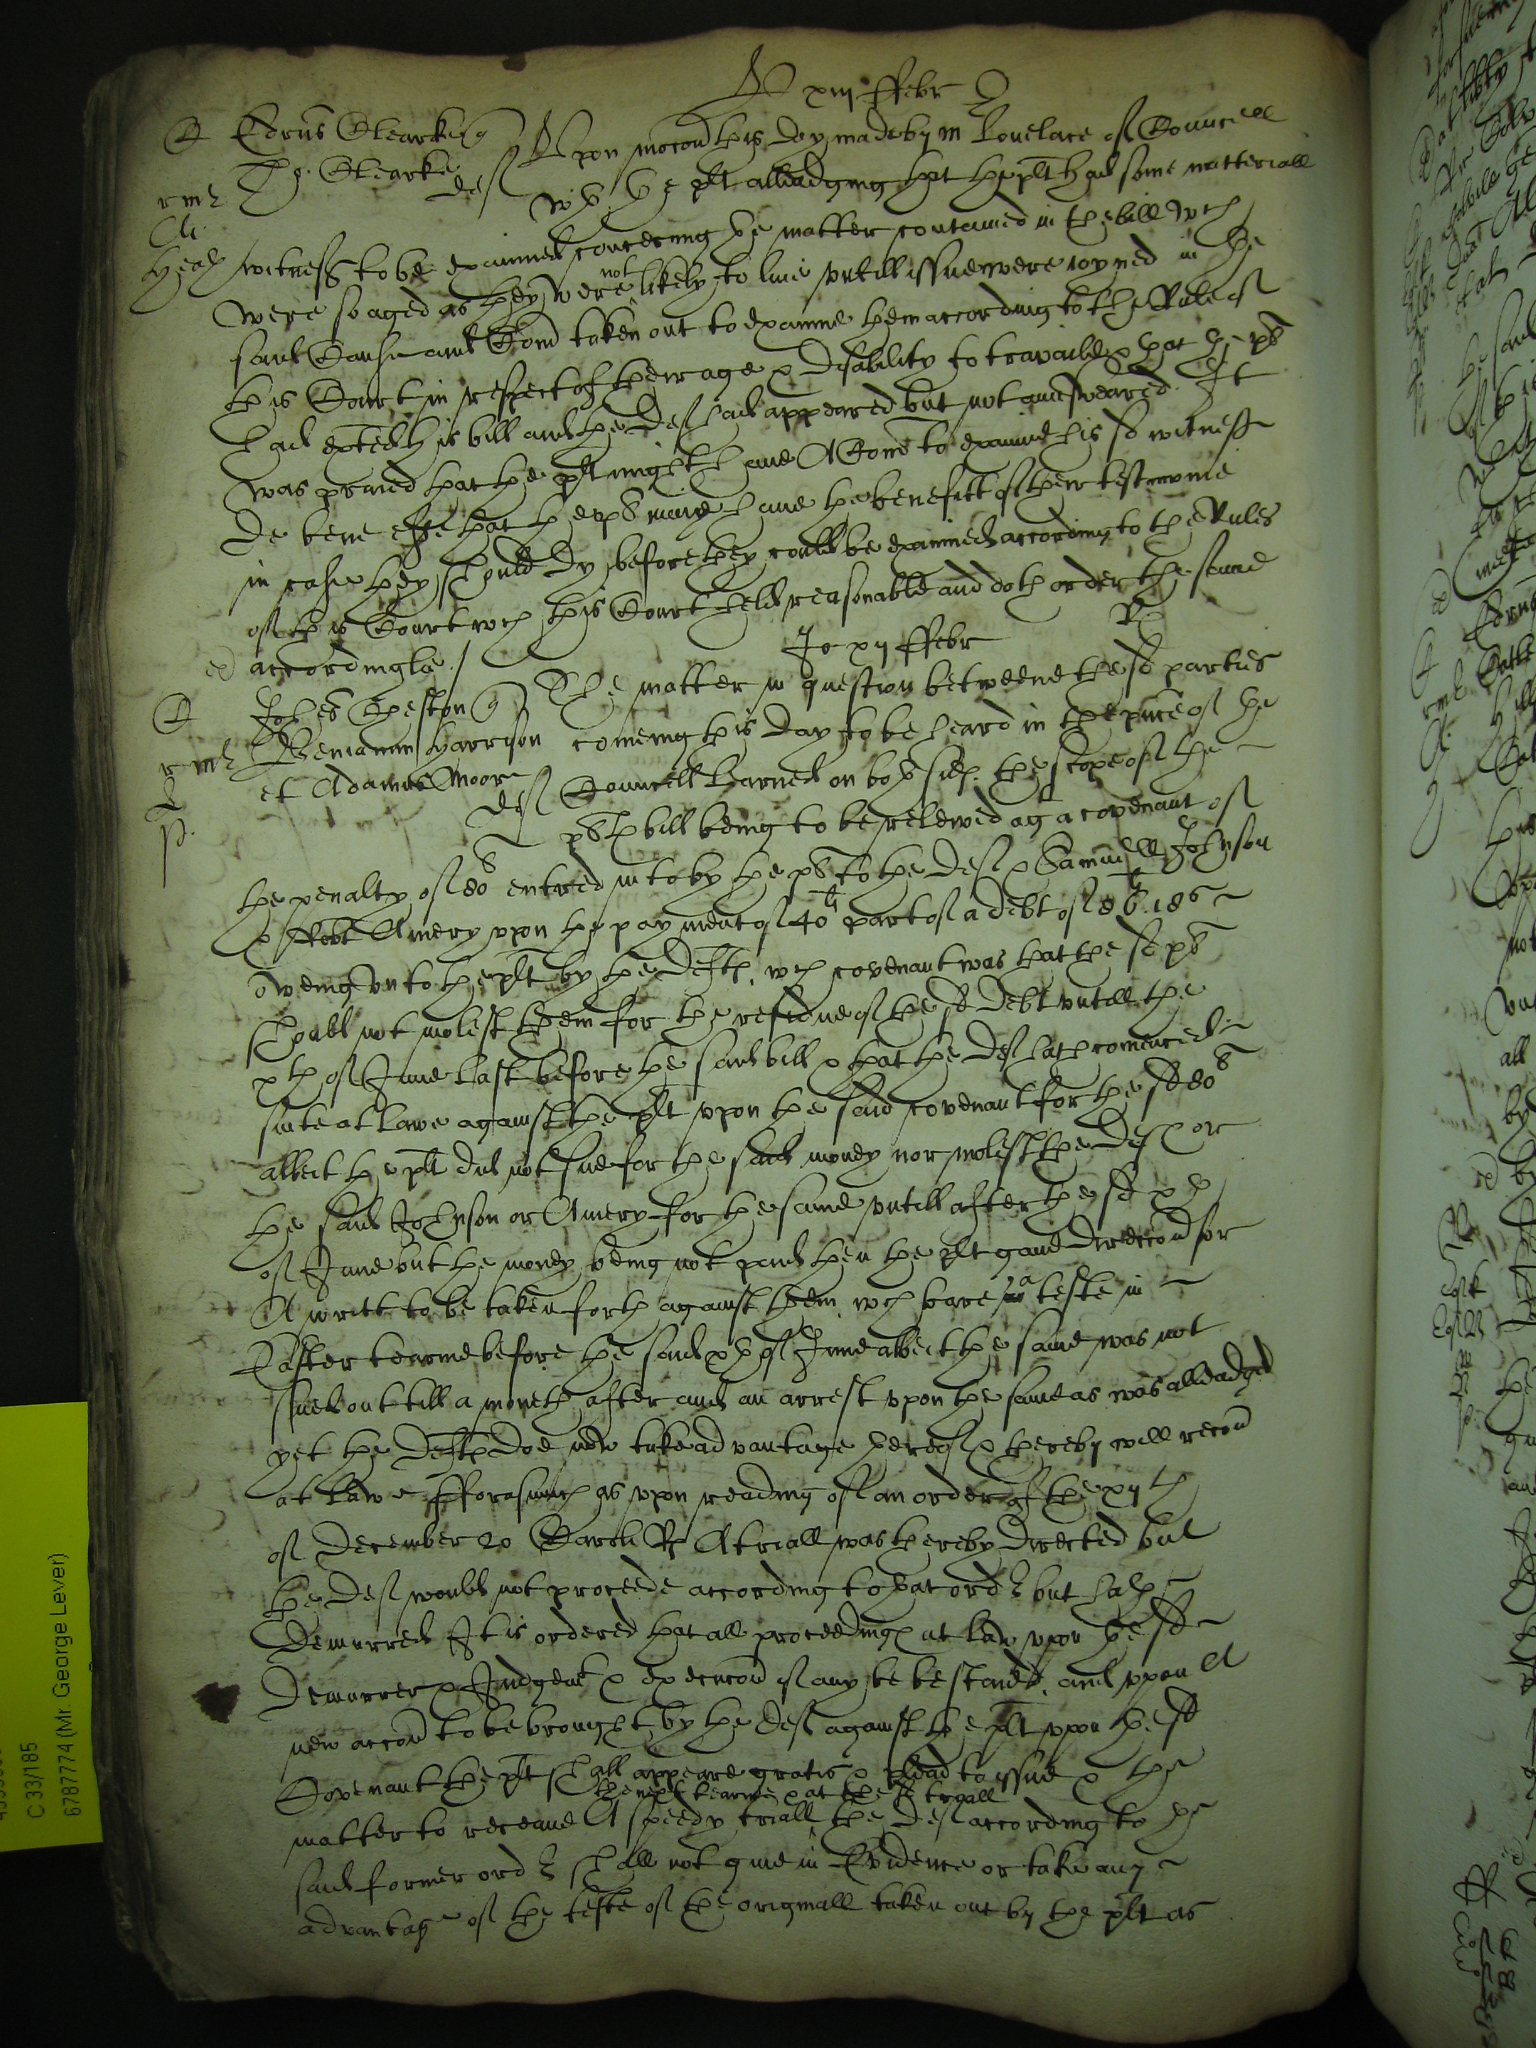 xiij ffebr
Edrus Clearke q
Tho. Clearke def
Upon mocon this day made by mr Lovelace of Councell
wth the plt alleadging that the plt had some materiall
witnesses to be examined concerning the matter contained in the bill wch
were so aged as they were not likely to live untill issue were ioyned in the
said Cause and Comn taken out to examine them according to the Rules of
this Court in respect of their age & disability to travaile & that the plt
had exhited his bill and the deft had appeared but not answeared It
was prayed that the plt might have A Comn to examine his sd witnesses
De bene esse that the plt maie have the benefitt of their testimonie
in case they should dy before they could be examined according to the Rules
of this Court wch this Court held reasonable and doth order the same
accordingly /
Jo xij ffebr
Johes Cheston q
Beniamin Harrison
et Adamus Moore def
The matter in question betweene the sd parties
comeing this day to be heard in the pnce of the
Councell Learned on both sides the scope of the
plts bill being to be releived agt a covenant of
the penalty of 80li entred into by the plt to the def & Samuell Johnson
& Robt Amery upon the payment of 40li part of a debt of
oweing unto the plt by the defts wch covenant was that the sd plt
should not molest them for the residue of the sd debt untill the
xth of June last before the said bill & that the def hath comenced
suite at Lawe against the plt upon the said covenant for the sd 80li
albeit the plt did not sue for the said money nor molest the def or
the said Johnson or Amery for the same untill after the sd xth
of June but the money being not paid then the plt gave direccon for
A writt to be taken forth against them wch bare a teste in
Easter tearme before the said xth of June albeit the same was not
sued out till a moneth after and an arrest upon the same as was alleadged
yet the defts doe now take advantage thereof & thereby will recour
at Lawe fforasmuch as upon reading of an order of the xijth
of December 20 Caroli Rs A triall was thereby directed but
the def would not proceede according to that order but hath
Demurred It is ordered that all proceedings at Law upon the sd
Demurrer & Judgemt & execucon if any be be stayed, and upon A
new accon to be brought by the def against the plt upon the sd
Covenant the plt shall appeare gratis & plead to issue & the
matter to receave A speedy triall the next tearme & at the sd tryall the def according to the
said former order shall not give in Evidence or take any
advantage of the teste of the originall taken out by the plt as
C 33/185
6787774 (Mr. George Lever)